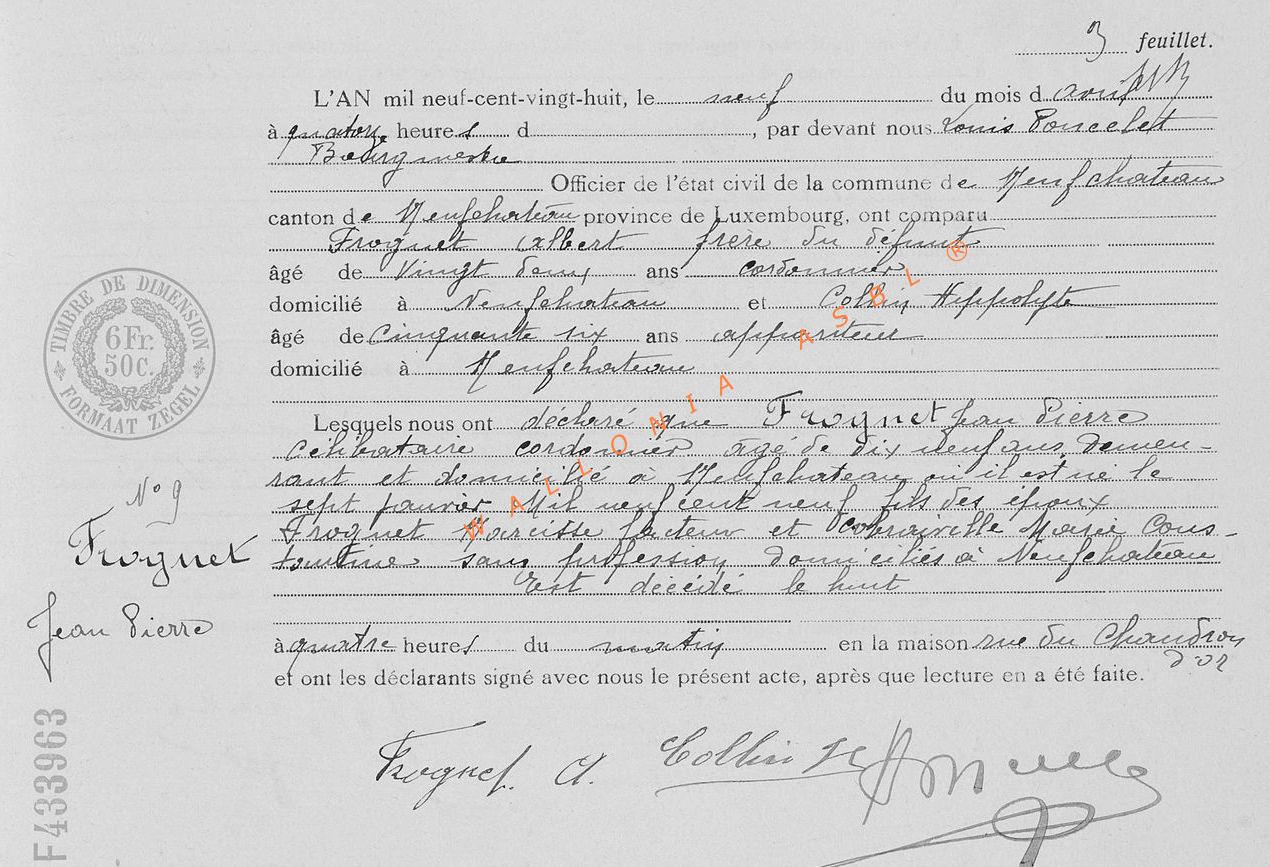 3 feuillet.
L'AN mil neuf-cent-vingt-huit, le neuf du mois d avril
à quatorze heures d , par devant nous Louis Poncelet
Bourgmestre
Officier de l'état civil de la commune de Neufchateau
canton de Neufchateau province de Luxembourg, ont comparu
Frognet Albert frère du défunt
âgé de Vingt deux ans cordonnier
domicilié à Neufchateau et Collin Hippolyte
âgé de Cinquante six ans appariteur
domicilié à Neufchateau
Lesquels nous ont déclaré que Frognet Jean Pierre
Célibataire cordonnier âgé de dix neuf ans, demeu-
rant et domicilié à Neufchateau où il est né le
sept janvier Mil neuf cent neuf fils des époux
Frognet Narcisse facteur et Marie Cons-
tantine sans profession domiciliés à Neufchateau
Est décédé le huit
à quatre heures du matin en la maison rue du Chaudron
d'or
et ont les déclarants signé avec nous le présent acte, après que lecture en a été faite.
Frognet. A. Collin H
No 9
Frognet
Jean Pierre
TIMBRE DE DIMENSION
6 Fr.
50c.
FORMAAT ZEGEL
F433963
WALLONIA ASBL ®